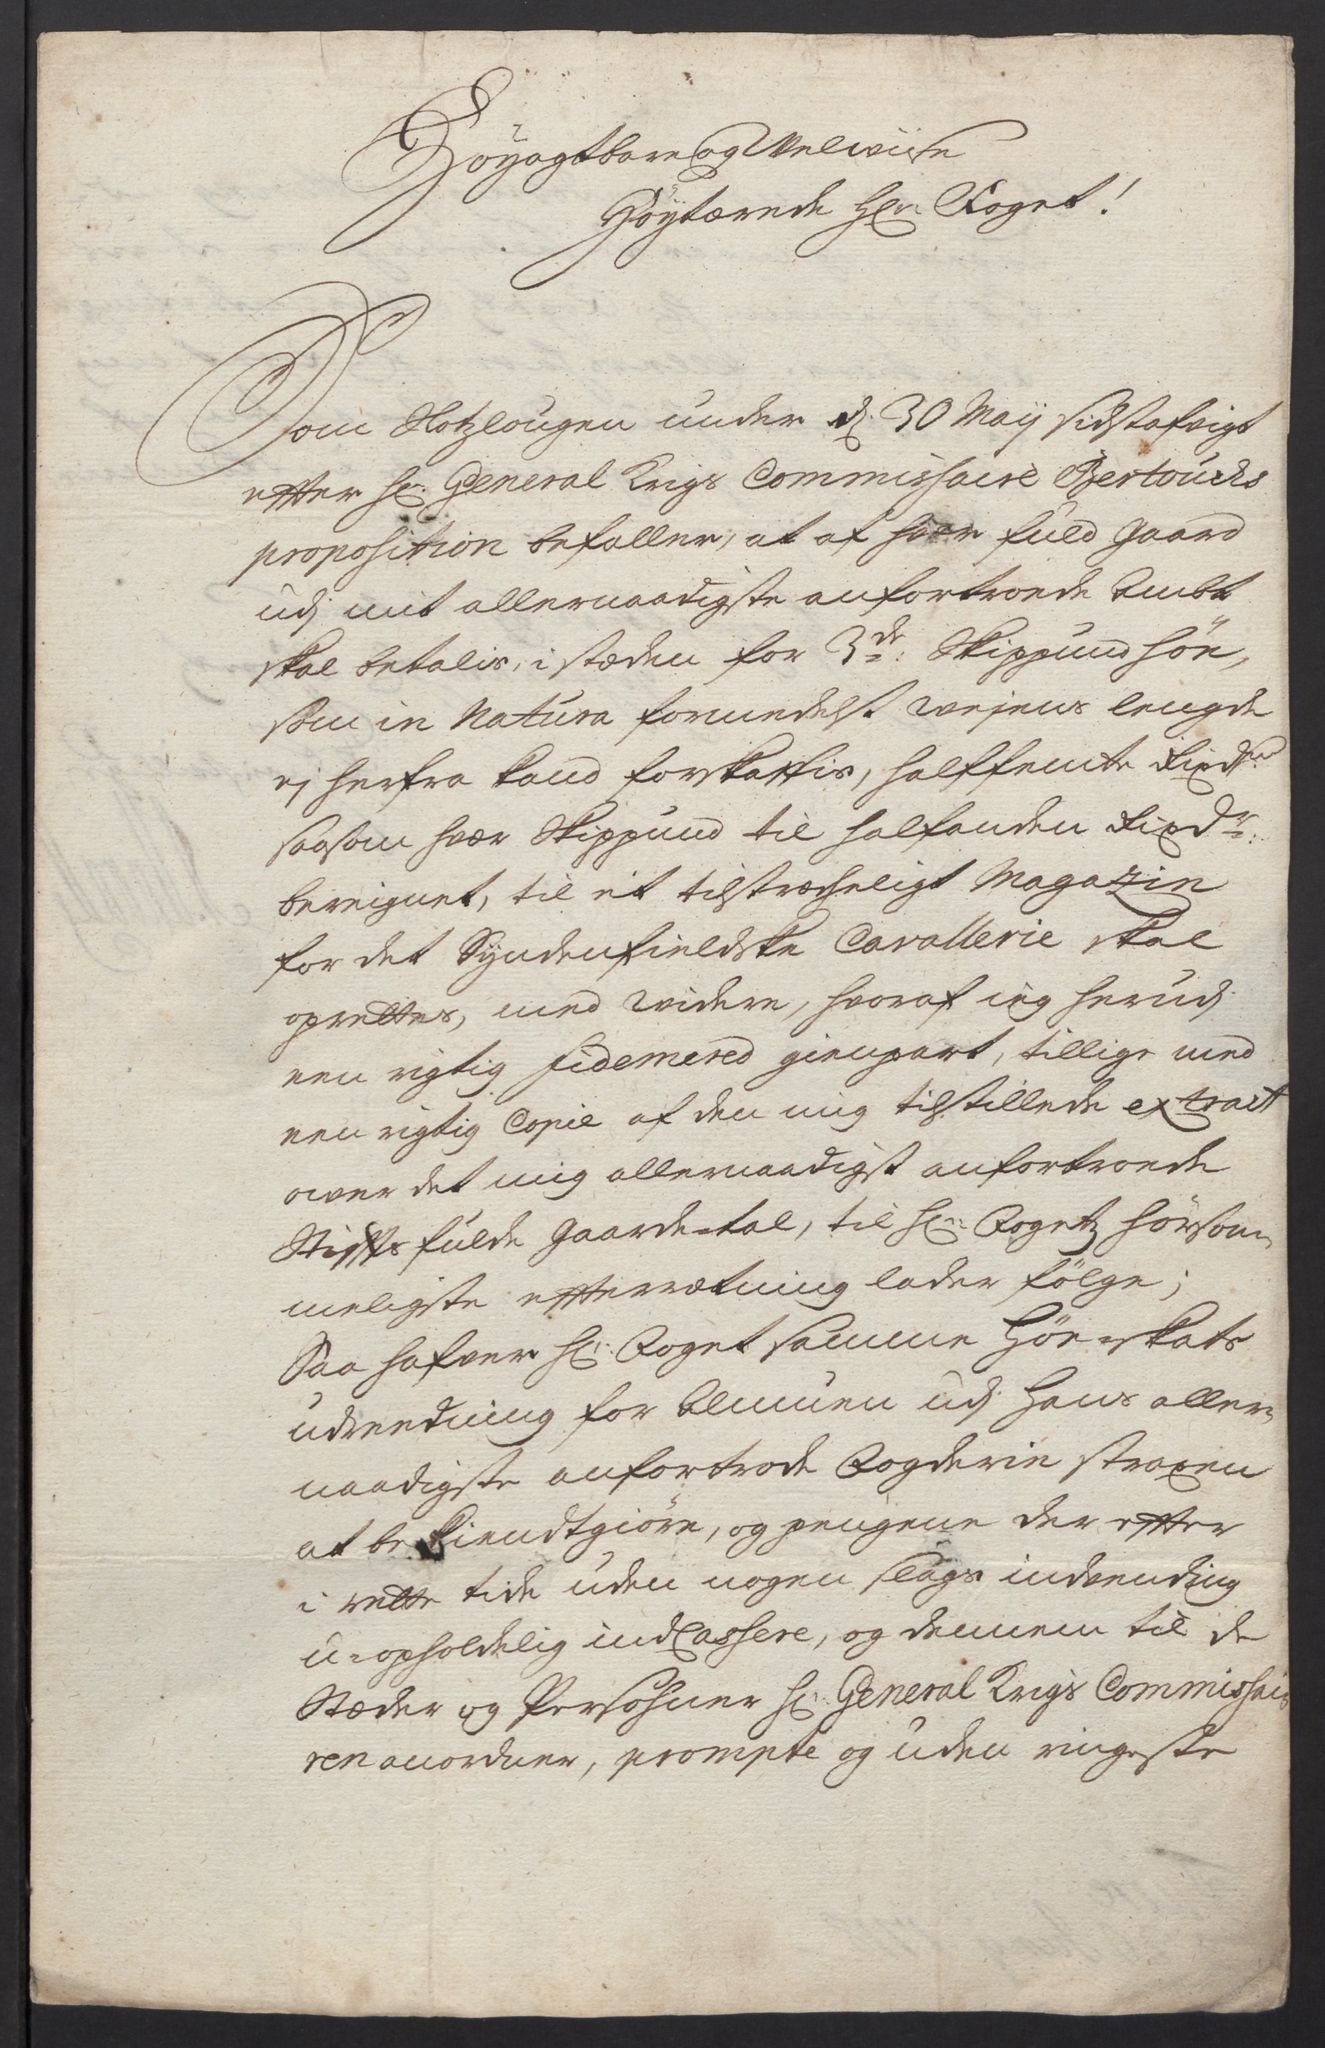 Höyagtbare og Velwise
Höytærede Hr: Foget!
Som Slotzlougen under d. 30 Maij sidstafvigt
effter Hr: General Krigs Commissaire Bertouchs
proposition befaller, at af hver fuld gaard
udj mit allernaadigste anfortroede Ambt
skal betalis, i stæden for 3de: Skippund höe,
som in Natura formedelst weiens lengde
ej herfra kand forskaffis, halffemte Rixdlr
saasom hver Skippund til halfanden Rixdr:
bereignet, til et tilstræcheligt Magazin
for det Syndenfieldske Cavallerie skal
oprettes, med widere, hvoraf ieg herudj
een rigtig fidemered gienpart, tillige med
een rigtig Copie af den mig tilstillede extract
ower det mig allernaadigst anfortroede
Stiffts fulde gaarde-tal, til Hr: Fogetz hörsom-
meligste effterretning lader fölge;
Saa hafver Hr: Foget samme Höe-skats
udreedning for Almuen udj Hans aller-
naadigste anfortrode Fogderie straxen
at bekiendtgiöre, og pengene der effter
i rette tide uden nogen slags indvending
u-opholdelig indcassere, og dennem til de
Stæder og Persohner Hr: General Krigs Commissai
ren anordner, prompte og uden ringeste